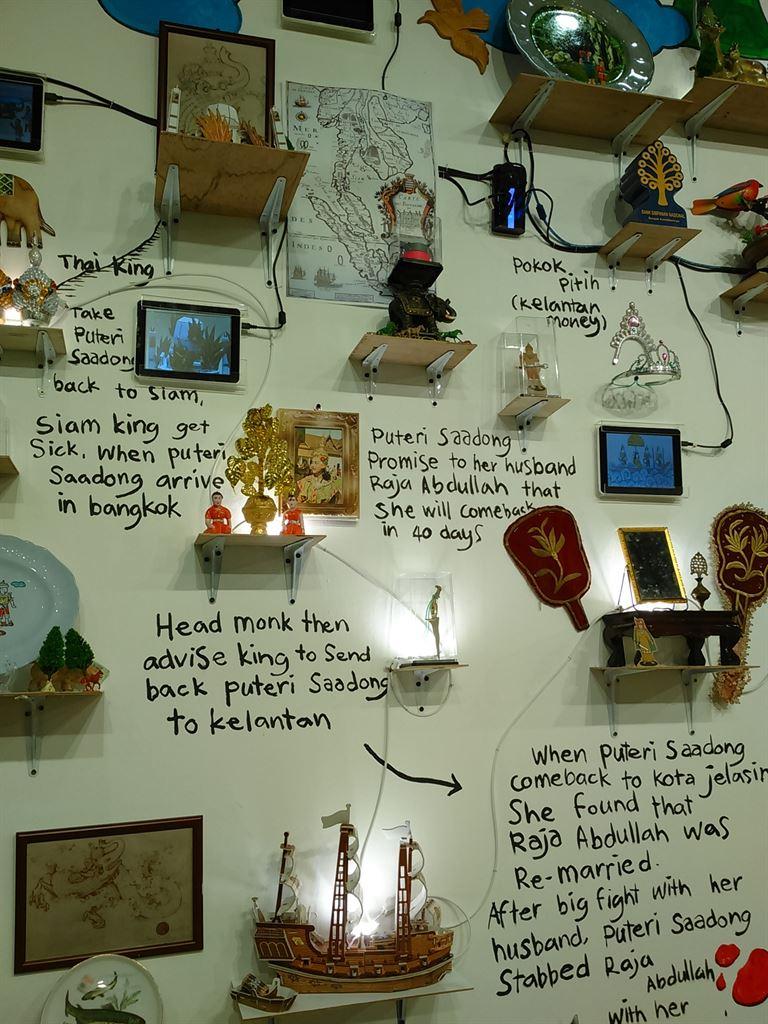 Thai King
Take
Puteri
Saadong
back to Siam,
Siam king get
Sick, when puteri
Saadong arrive
in bangkok
Pokok
Pitih
(kelantan
money)
BANK SIMPANAN NASIONAL
Puteri Saadong
Promise to her husband
Raja Abdullah that
She will comeback
in 40 days
Head monk then
advise king to Send
back puteri Saadong
to kelantan
When Puteri Saadong
comeback to kota jelasin
She found that
Raja Abdullah was
Re-married.
After big fight with her
husband, Puteri Saadong
Stabbed Raja
Abdullah
with her